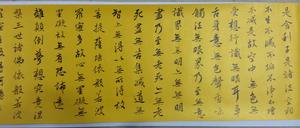 是舍利子是諸法空相
不生不滅不垢不淨
受想行識無眼耳鼻
無眼界乃至無意
識界無無明亦無無明
盡乃至無老死亦無老
死盡無苦集滅道無
智亦無得以無所得故
菩提薩埵依般若波
羅蜜多故心無罣礙無
罣礙故無有恐怖遠
離顛倒夢想究竟涅
槃三世諸佛依般若波